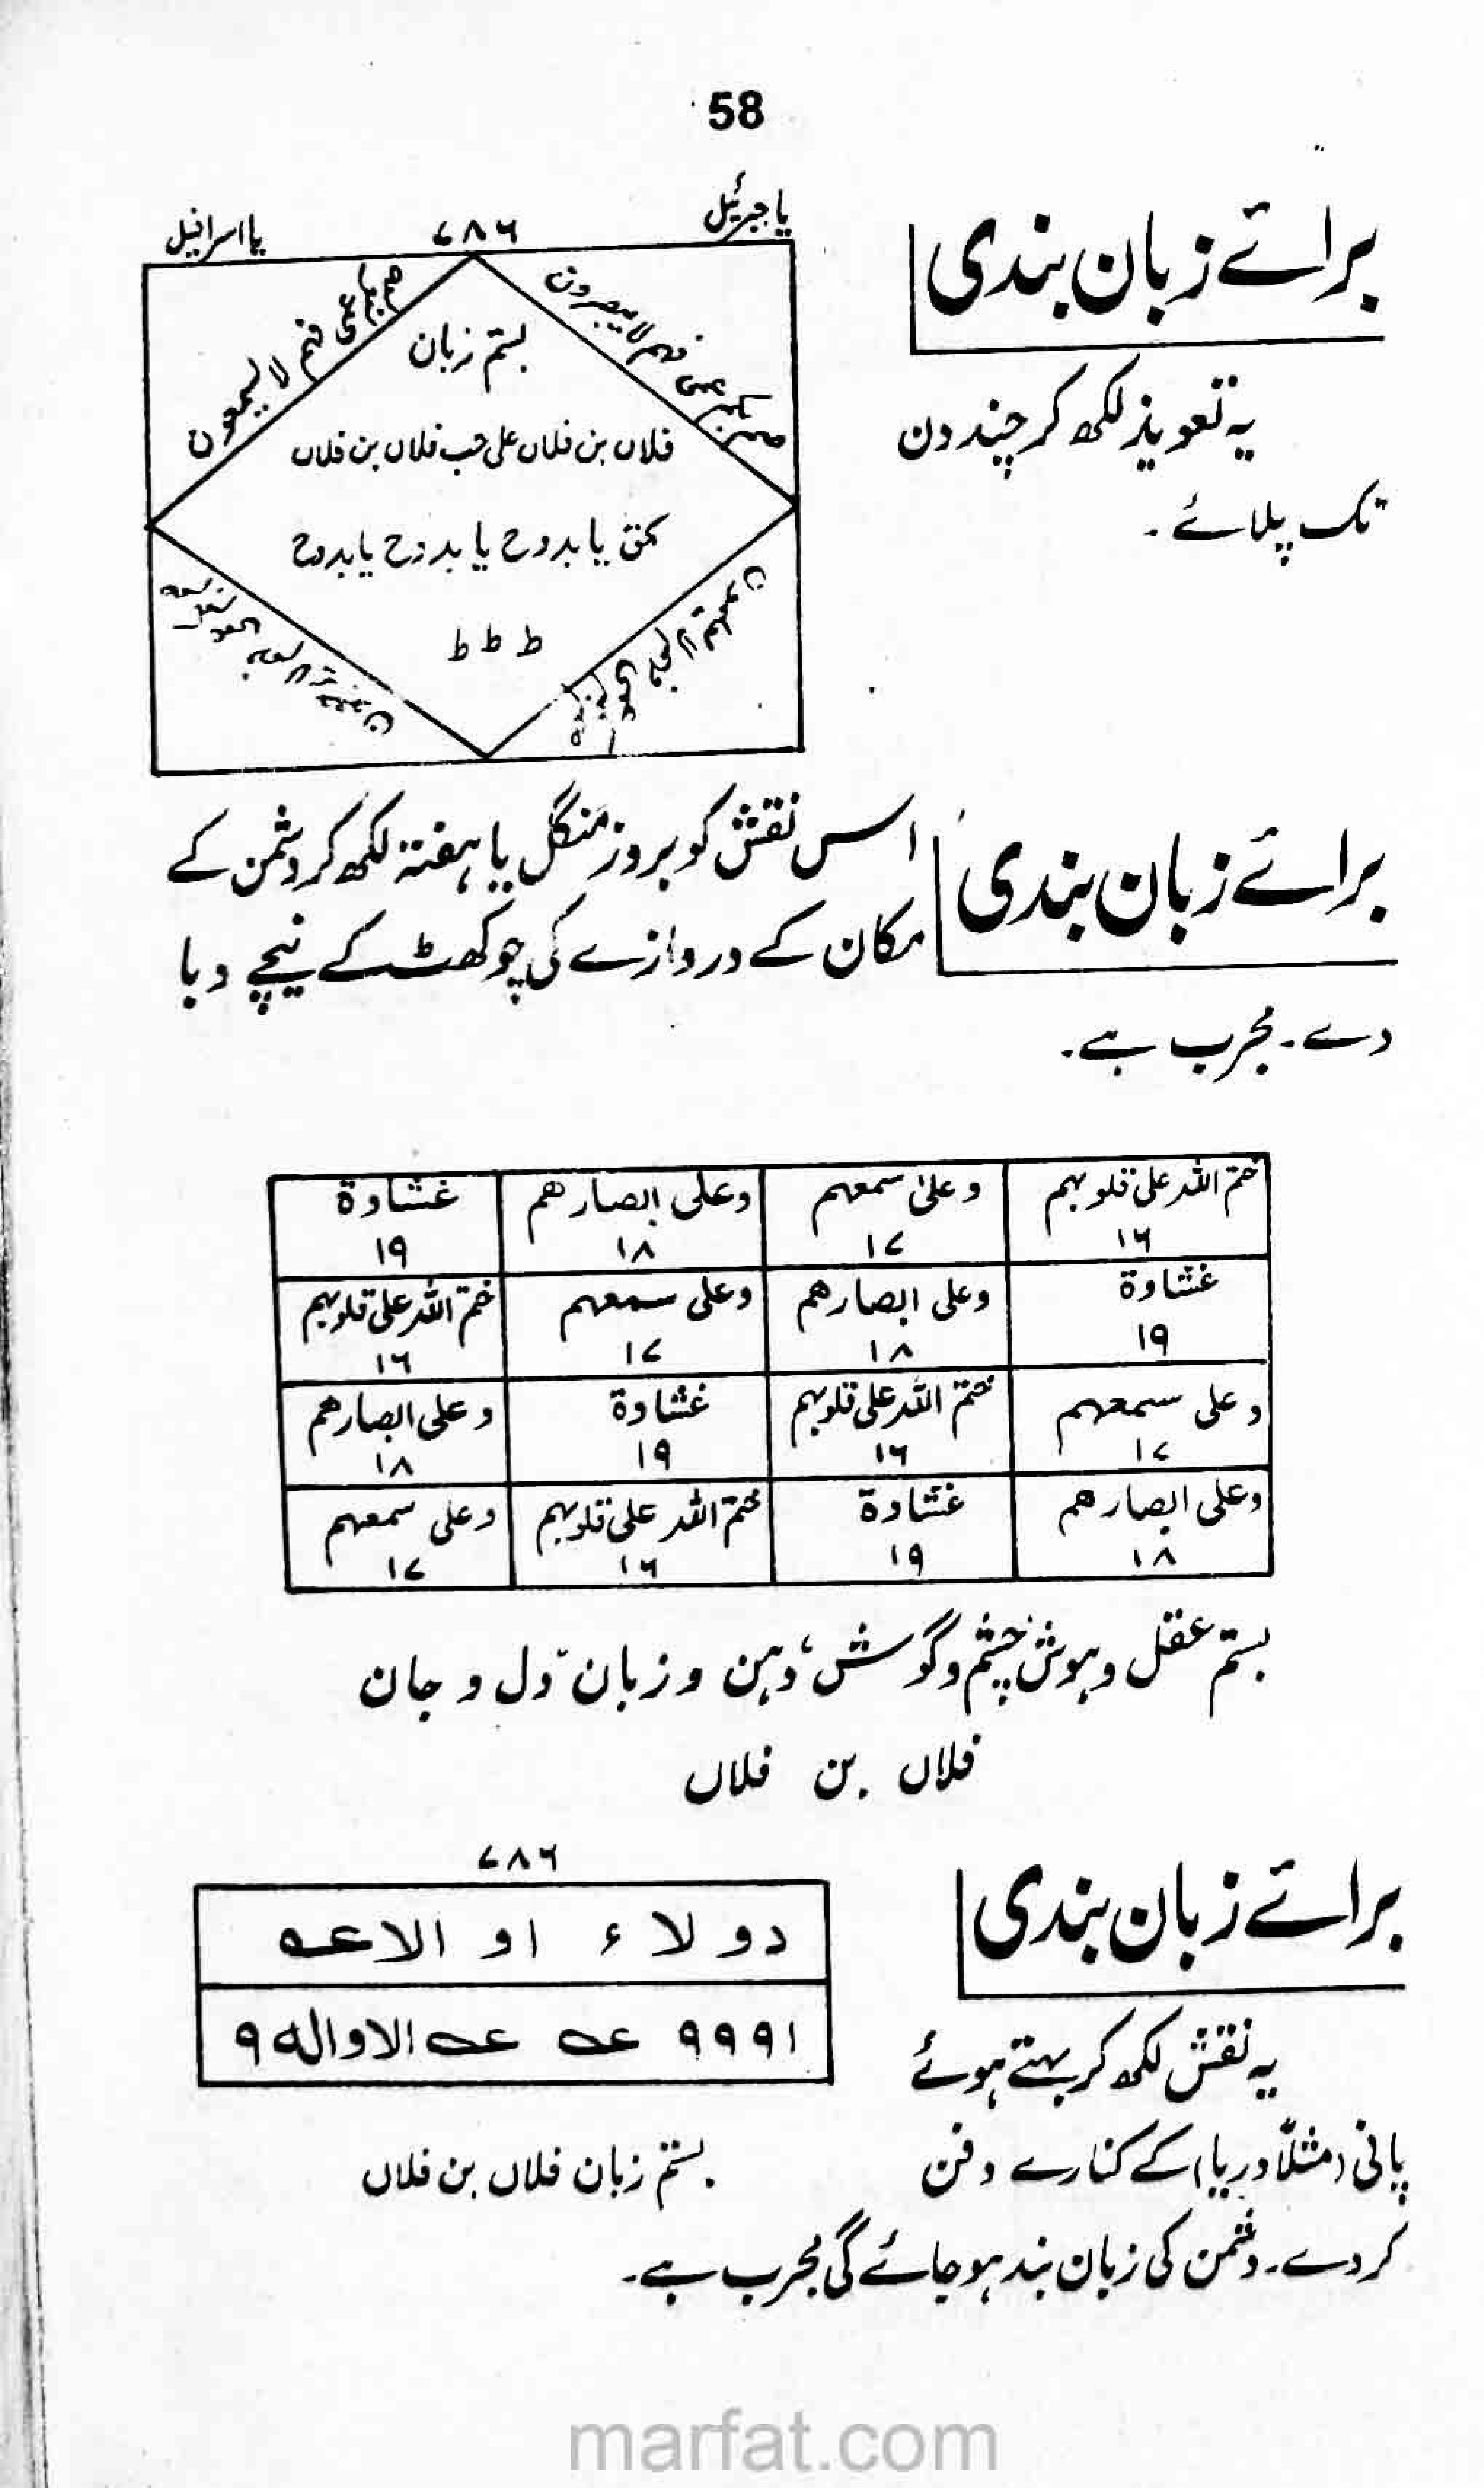 58
برائے زبان بندی
یہ تعویذ لکھ کر چند دن
تک پلائے۔
یا جبرئیل
۷۸۶
یا اسرافیل
صم بکم عمی فہم لا یبصرون
صم بکم عمی فہم لا یسمعون
بستم زبان
فلاں بن فلاں علی حب فلاں بن فلاں
بحق یا بدوح یا بدوح یا بدوح
ط ط ط
برائے زبان بندی
اس نقش کو بروز منگل یا ہفتہ لکھ کر دشمن کے
مکان کے دروازے کی چوکھٹ کے نیچے دبا
دے۔ مجرب ہے۔
ختم اللہ علی قلوبہم وعلیٰ سمعہم وعلی ابصارھم غشاوۃ
۱۶ ۱۷ ۱۸ ۱۹
غشاوۃ وعلی ابصارھم وعلی سمعہم ختم اللہ علی قلوبہم
۱۹ ۱۸ ۱۷ ۱۶
وعلی سمعہم ختم اللہ علی قلوبہم غشاوۃ وعلی ابصارھم
۱۷ ۱۶ ۱۹ ۱۸
وعلی ابصارھم غشاوۃ ختم اللہ علی قلوبہم وعلی سمعہم
۱۸ ۱۹ ۱۶ ۱۷
بستم عقل و ہوش چشم و گوش، دہن و زبان دل و جان
فلاں بن فلاں
برائے زبان بندی
۷۸۶
دو لا ء او الاعہ
۱۹۹۹ عہ عہ الاوالہ ۹
بستم زبان فلاں بن فلاں
یہ نقش لکھ کر بہتے ہوئے
پانی (مثلاً دریا) کے کنارے دفن
کر دے۔ دشمن کی زبان بند ہو جائے گی مجرب ہے۔
marfat.com